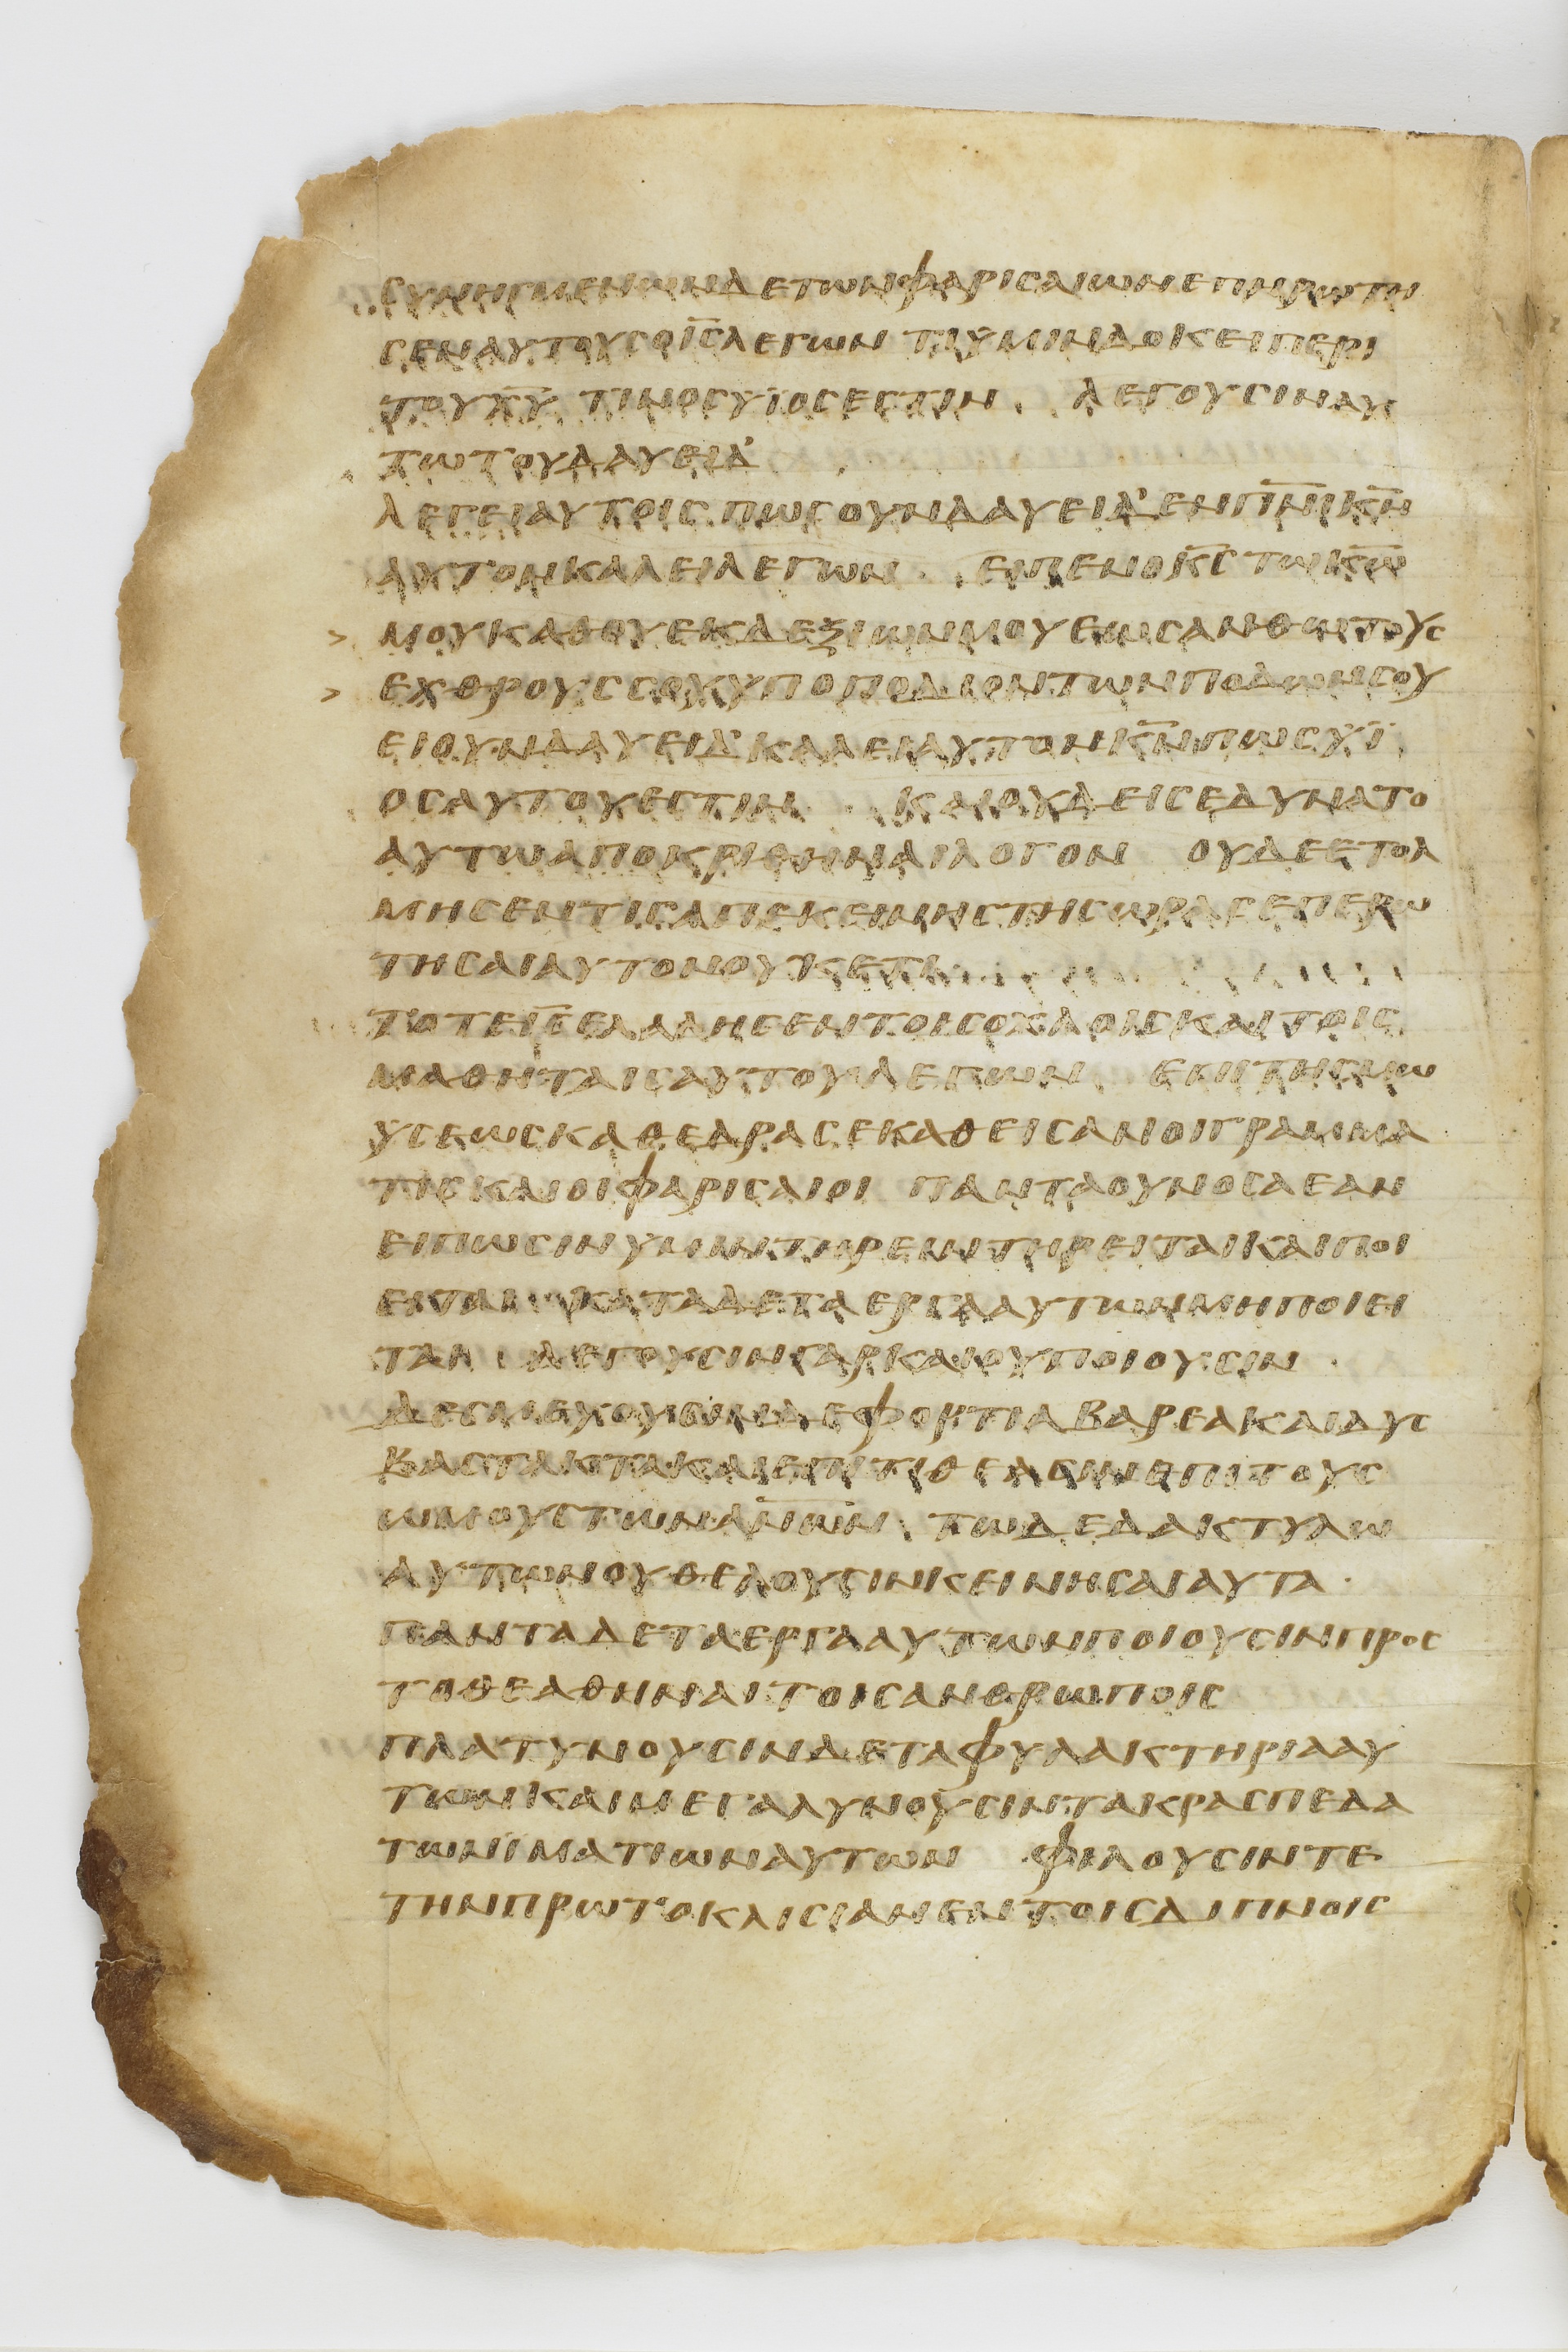 ϹΥΝΗΓΜΕΝΩΝΔΕΤΩΝΦΑΡΙϹΑΙΩΝΕΠΗΡΩΤΗ
ϹΕΝΑΥΤΟΥϹΟΙ̅Ϲ̅ΛΕΓΩΝ ΤΙΫΜΙΝΔΟΚΕΙΠΕΡΙ
ΤΟΥΧ̅Υ̅ ΤΙΝΟϹΥΪΟϹΕϹΤΙΝ ΛΕΓΟΥϹΙΝΑΥ
ΤΩΤΟΥΔΑΥΕΙΔ
ΛΕΓΕΙΑΥΤΟΙϹ ΠΩϹΟΥΝΔΑΥΕΙΔΕΝΠ̅Ν̅Ι̅Κ̅Ν̅
ΑΥΤΟΝΚΑΛΕΙΛΕΓΩΝ ΕΙΠΕΝΟΚ̅Ϲ̅ΤΩΚ̅Ω̅
> ΜΟΥΚΑΘΟΥΕΚΔΕΞΙΩΝΜΟΥΕΩϹΑΝΘΩΤΟΥϹ
> ΕΧΘΡΟΥϹϹΟΥΫΠΟΠΟΔΙΟΝΤΩΝΠΟΔΩΝϹΟΥ
ΕΙΟΥΝΔΑΥΕΙΔΚΑΛΕΙΑΥΤΟΝΚ̅Ν̅ΠΩϹΥΪ
ΟϹΑΥΤΟΥΕϹΤΙΝ ΚΑΙΟΥΔΕΙϹΕΔΥΝΑΤΟ
ΑΥΤΩΑΠΟΚΡΙΘΗΝΑΙΛΟΓΟΝ ΟΥΔΕΕΤΟΛ
ΜΗϹΕΝΤΙϹΑΠΕΚΕΙΝΗϹΤΗϹΩΡΑϹΕΠΕΡΩ
ΤΗϹΑΙΑΥΤΟΝΟΥΚΕΤΙ
ΤΟΤΕΙ̅Ϲ̅ΕΛΑΛΗϹΕΝΤΟΙϹΟΧΛΟΙϹΚΑΙΤΟΙϹ
ΜΑΘΗΤΑΙϹΑΥΤΟΥΛΕΓΩΝ ΕΠΙΤΗϹΜΩ
ΥϹΕΩϹΚΑΘΕΔΡΑϹΕΚΑΘΕΙϹΑΝΟΙΓΡΑΜΜΑ
ΤΙϹΚΑΙΟΙΦΑΡΙϹΑΙΟΙ ΠΑΝΤΑΟΥΝΟϹΑΕΑΝ
ΕΙΠΩϹΙΝΥΜΙΝΤΗΡΕΙΝΤΗΡΕΙΤΑΙΚΑΙΠΟΙ
ΕΙΤΑΙ ΚΑΤΑΔΕΤΑΕΡΓΑΑΥΤΩΝΜΗΠΟΙΕΙ
ΤΑΙ ΛΕΓΟΥϹΙΝΓΑΡΚΑΙΟΥΠΟΙΟΥϹΙΝ
ΔΕϹΜΕΥΟΥϹΙΝΔΕΦΟΡΤΙΑΒΑΡΕΑΚΑΙΔΥϹ
ΒΑϹΤΑΚΤΑΚΑΙΕΠΙΤΙΘΕΑϹΙΝΕΠΙΤΟΥϹ
ΩΜΟΥϹΤΩΝΑ̅Ν̅Ω̅Ν̅ ΤΩΔΕΔΑΚΤΥΛΩ
ΑΥΤΩΝΟΥΘΕΛΟΥϹΙΝΚΕΙΝΗϹΑΙΑΥΤΑ
ΠΑΝΤΑΔΕΤΑΕΡΓΑΑΥΤΩΝΠΟΙΟΥϹΙΝΠΡΟϹ
ΤΟΘΕΑΘΗΝΑΙΤΟΙϹΑΝΘΡΩΠΟΙϹ
ΠΛΑΤΥΝΟΥϹΙΝΔΕΤΑΦΥΛΑΚΤΗΡΙΑΑΥ
ΤΩΝΚΑΙΜΕΓΑΛΥΝΟΥϹΙΝΤΑΚΡΑϹΠΕΔΑ
ΤΩΝΪΜΑΤΙΩΝΑΥΤΩΝ ΦΙΛΟΥϹΙΝΤΕ
ΤΗΝΠΡΩΤΟΚΛΙϹΙΑΝΕΝΤΟΙϹΔΙΠΝΟΙϹ